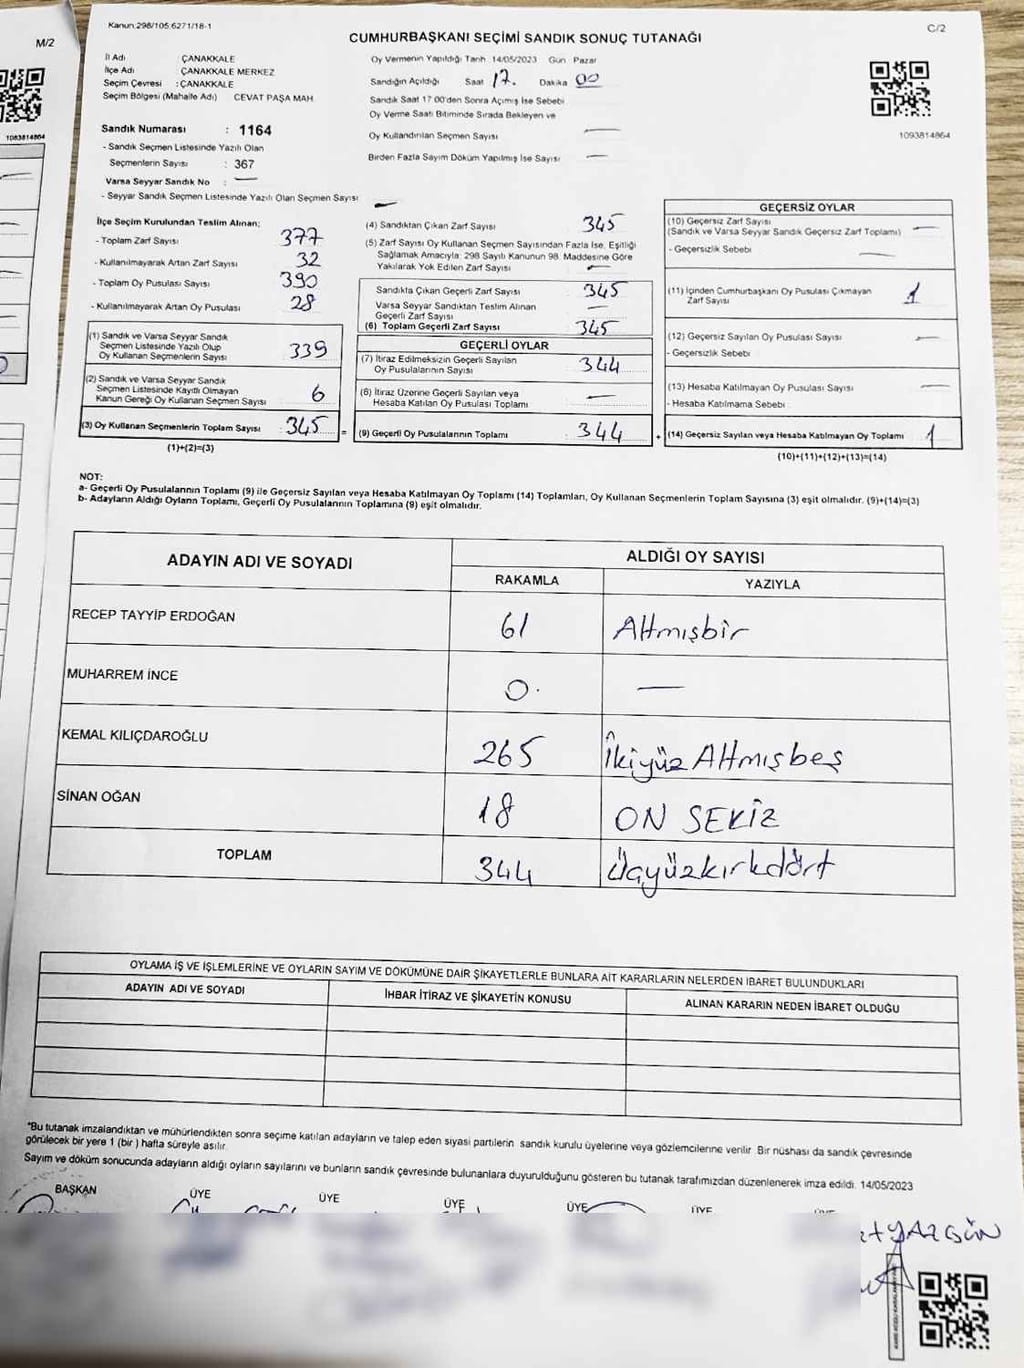 M/2
1083814864
Kanun:298/105;6271/18-1
C/2
CUMHURBAŞKANI SEÇİMİ SANDIK SONUÇ TUTANAĞI
İl Adı ÇANAKKALE
İlçe Adı : ÇANAKKALE MERKEZ
Seçim Çevresi : ÇANAKKALE
Seçim Bölgesi (Mahalle Adı) CEVAT PAŞA MAH
Sandık Numarası : 1164
- Sandık Seçmen Listesinde Yazılı Olan
Seçmenlerin Sayısı : 367
Varsa Seyyar Sandık No : —
- Seyyar Sandık Seçmen Listesinde Yazılı Olan Seçmen Sayısı —
Oy Vermenin Yapıldığı Tarih 14/05/2023 Gün Pazar
Sandığın Açıldığı Saat 17. Dakika 00
Sandık Saat 17:00'den Sonra Açımış İse Sebebi
Oy Verme Saati Bitiminde Sırada Bekleyen ve
Oy Kullandırılan Seçmen Sayısı —
Birden Fazla Sayım Döküm Yapılmış İse Sayısı —
1093814864
İlçe Seçim Kurulundan Teslim Alınan;
- Toplam Zarf Sayısı 377
- Kullanılmayarak Artan Zarf Sayısı 32
- Toplam Oy Pusulası Sayısı 390
- Kullanılmayarak Artan Oy Pusulası 28
(1) Sandık ve Varsa Seyyar Sandık
Seçmen Listesinde Yazılı Olup
Oy Kullanan Seçmenlerin Sayısı 339
(2) Sandık ve Varsa Seyyar Sandık
Seçmen Listesinde Kayıtlı Olmayan
Kanun Gereği Oy Kullanan Seçmen Sayısı 6
(3) Oy Kullanan Seçmenlerin Toplam Sayısı : 345 =
(1)+(2)=(3)
(4) Sandıktan Çıkan Zarf Sayısı 345
(5) Zarf Sayısı Oy Kullanan Seçmen Sayısından Fazla İse, Eşitliği
Sağlamak Amacıyla: 298 Sayılı Kanunun 98. Maddesine Göre
Yakılarak Yok Edilen Zarf Sayısı —
Sandıkta Çıkan Geçerli Zarf Sayısı 345
Varsa Seyyar Sandıktan Teslim Alınan
Geçerli Zarf Sayısı —
(6) Toplam Geçerli Zarf Sayısı 345
GEÇERLİ OYLAR
(7) İtiraz Edilmeksizin Geçerli Sayılan
Oy Pusulalarının Sayısı 344
(8) İtiraz Üzerine Geçerli Sayılan veya
Hesaba Katılan Oy Pusulası Toplamı —
(9) Geçerli Oy Pusulalarının Toplamı 344 +
GEÇERSİZ OYLAR
(10) Geçersiz Zarf Sayısı
(Sandık ve Varsa Seyyar Sandık Geçersiz Zarf Toplamı) —
- Geçersizlik Sebebi —
(11) İçinden Cumhurbaşkanı Oy Pusulası Çıkmayan
Zarf Sayısı 1
(12) Geçersiz Sayılan Oy Pusulası Sayısı —
- Geçersizlik Sebebi
(13) Hesaba Katılmayan Oy Pusulası Sayısı —
- Hesaba Katılmama Sebebi
(14) Geçersiz Sayılan veya Hesaba Katılmayan Oy Toplamı 1
(10)+(11)+(12)+(13)=(14)
NOT:
a- Geçerli Oy Pusulalarının Toplamı (9) ile Geçersiz Sayılan veya Hesaba Katılmayan Oy Toplamı (14) Toplamları, Oy Kullanan Seçmenlerin Toplam Sayısına (3) eşit olmalıdır. (9)+(14)=(3)
b- Adayların Aldığı Oyların Toplamı, Geçerli Oy Pusulalarının Toplamına (9) eşit olmalıdır.
ADAYIN ADI VE SOYADI ALDIĞI OY SAYISI
RAKAMLA YAZIYLA
RECEP TAYYİP ERDOĞAN 61 Altmışbir
MUHARREM İNCE 0. —
KEMAL KILIÇDAROĞLU 265 İkiyüz Altmışbeş
SİNAN OĞAN 18 ON SEKİZ
TOPLAM 344 Üçyüzkırkdört
OYLAMA İŞ VE İŞLEMLERİNE VE OYLARIN SAYIM VE DÖKÜMÜNE DAİR ŞİKAYETLERLE BUNLARA AİT KARARLARIN NELERDEN İBARET BULUNDUKLARI
ADAYIN ADI VE SOYADI İHBAR İTİRAZ VE ŞİKAYETİN KONUSU ALINAN KARARIN NEDEN İBARET OLDUĞU
"Bu tutanak imzalandıktan ve mühürlendikten sonra seçime katılan adayların ve talep eden siyasi partilerin sandık kurulu üyelerine veya gözlemcilerine verilir. Bir nüshası da sandık çevresinde
görülecek bir yere 1 (bir) hafta süreyle asılır.
Sayım ve döküm sonucunda adayların aldığı oyların sayılarını ve bunların sandık çevresinde bulunanlara duyurulduğunu gösteren bu tutanak tarafımızdan düzenlenerek imza edildi. 14/05/2023
BAŞKAN ÜYE ÜYE ÜYE ÜYE ÜYE
YAZGÜN